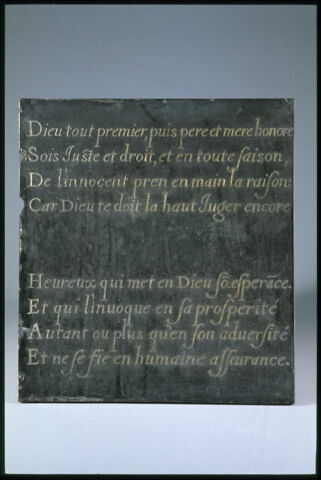 Dieu tout premier, puis pere et mere honore
Sois Juste et droit, et en toute saison,
De l'innocent pren en main la raison:
Car Dieu te doit la haut Juger encore
Heureux qui met en Dieu sō esperāce.
Et qui l'inuoque en sa prosperité
Autant ou plus qu'en son aduersité
Et ne se fie en humaine asseurance.